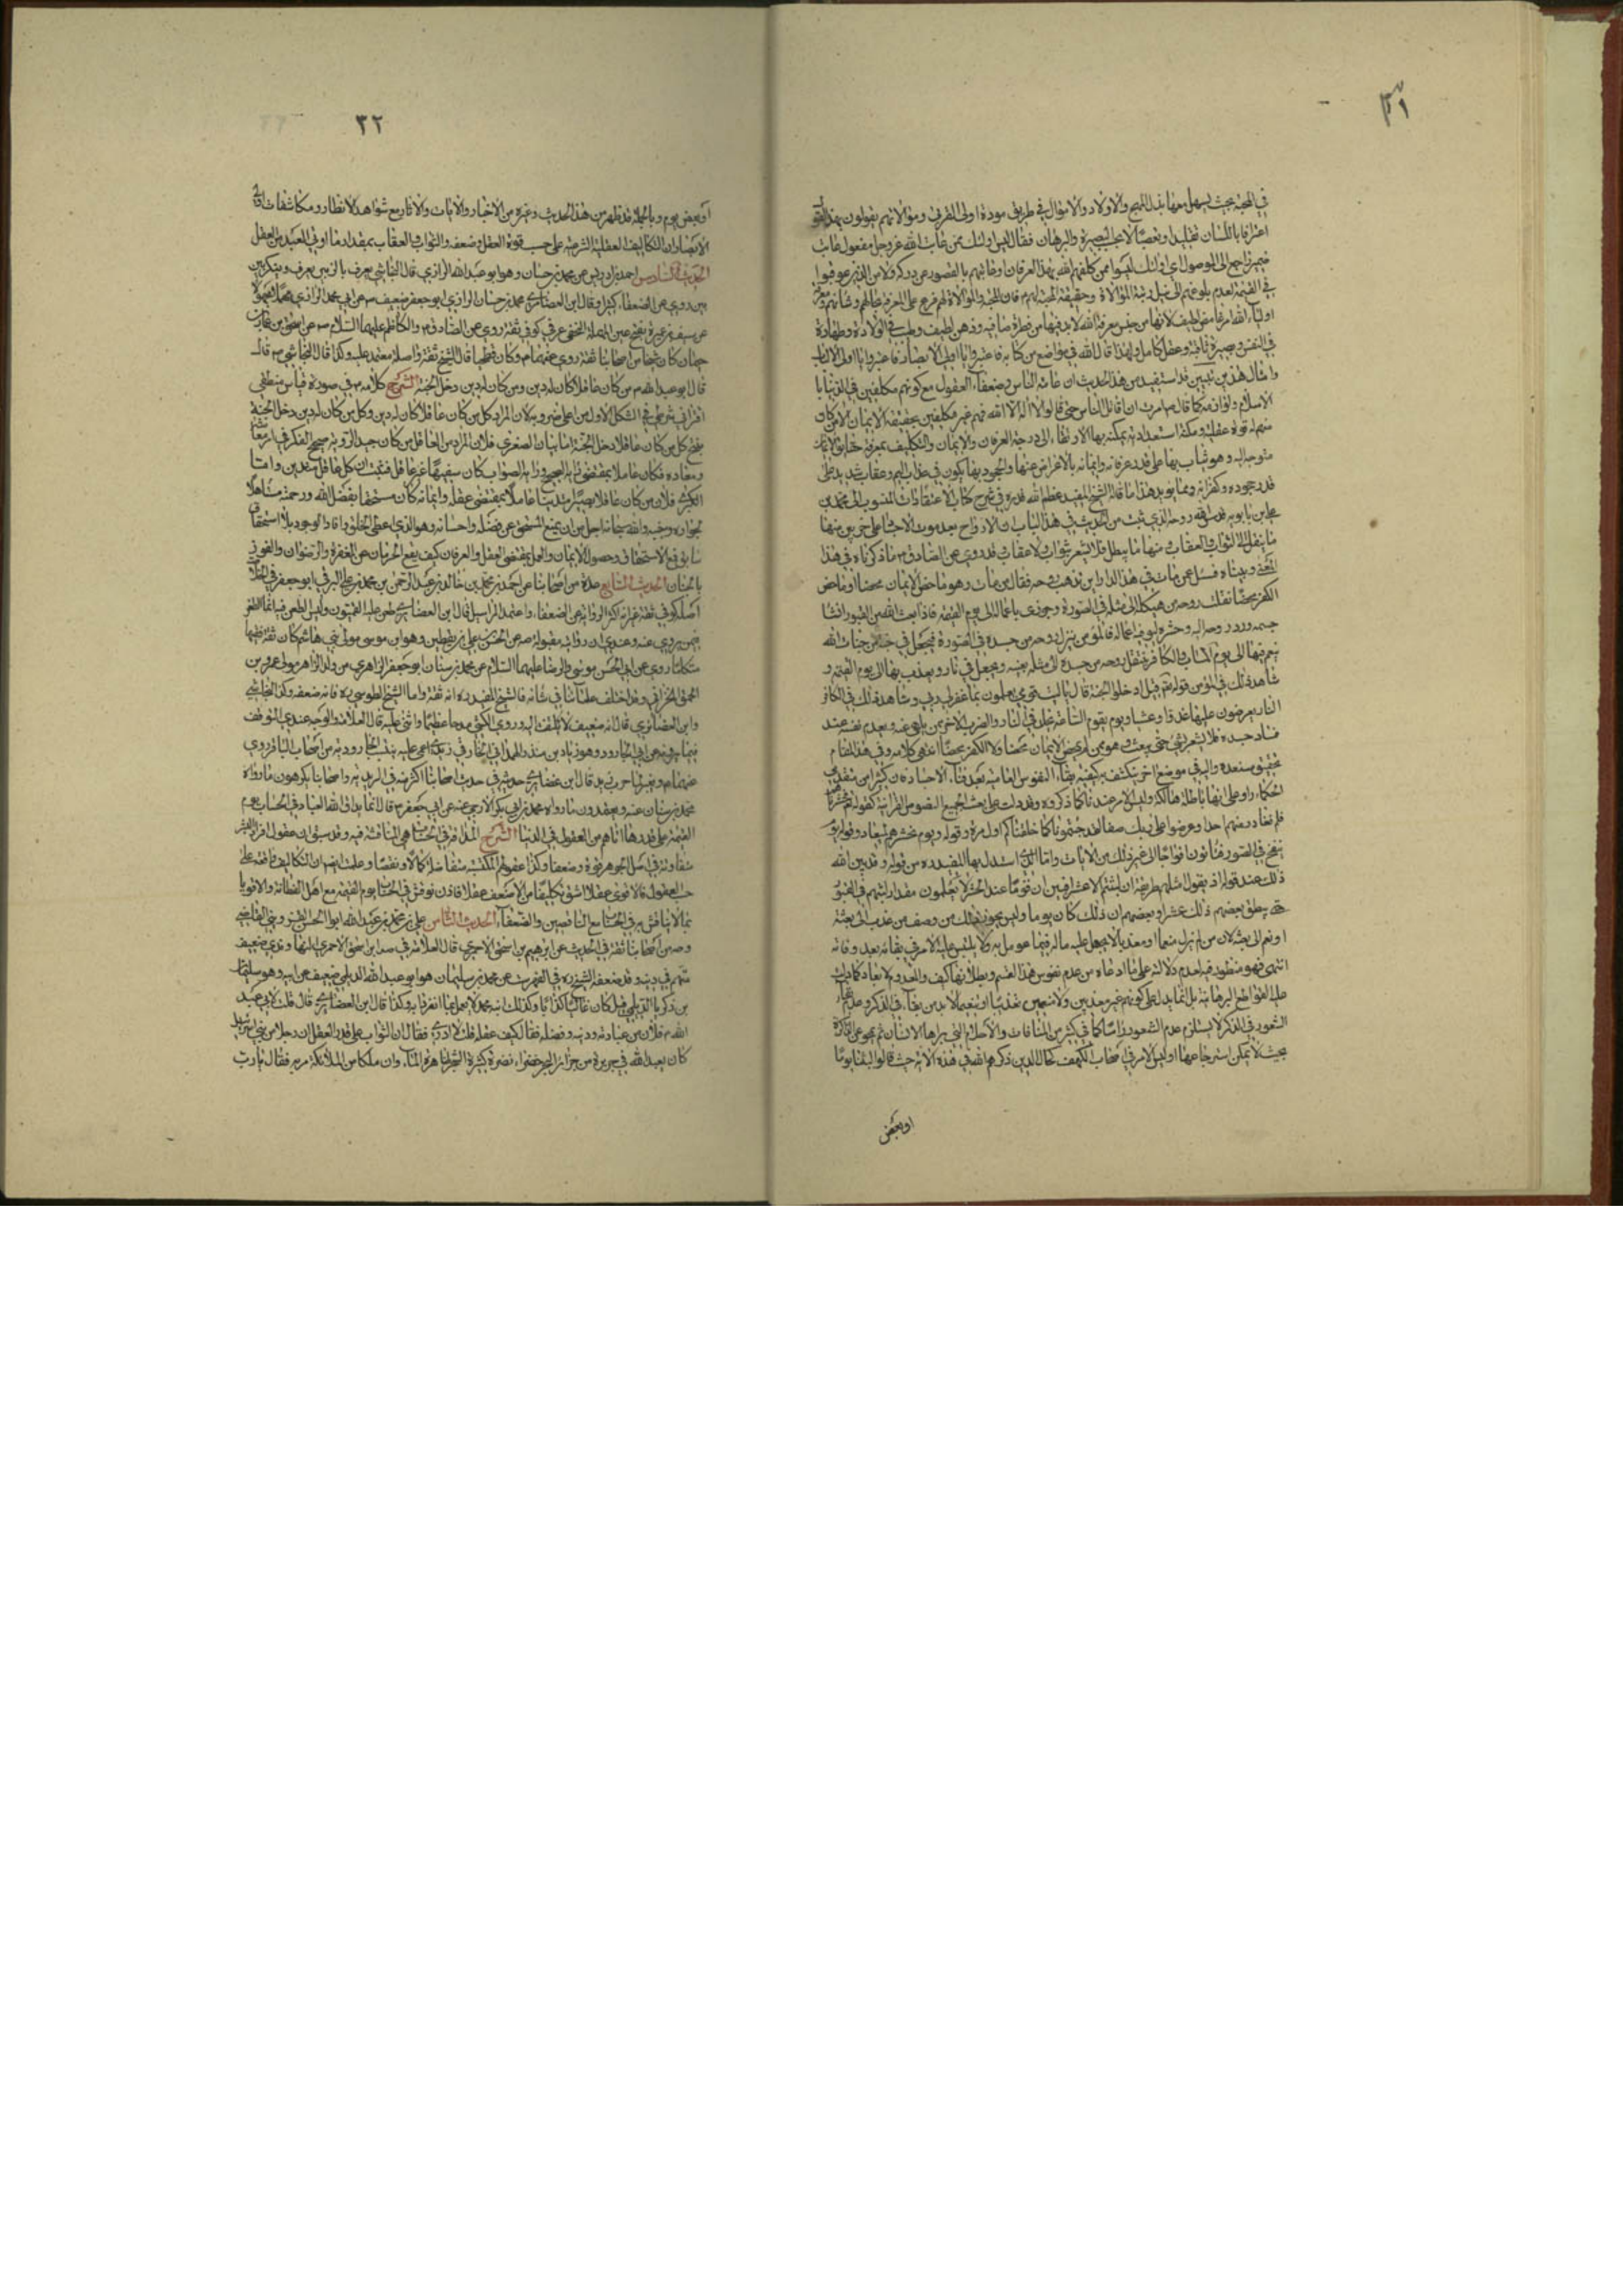 ٣١
في المحبة بحيث يسهل معها بذل المهج والاولاد والاموال في طريق مودة اولى القربى وموالاتهم يقولون بهذا القول
اعترافا باللسان تقليدا وتعصبا لا بحسب البصيرة والبرهان فقال ليس اولئك ممن عاتب الله عز وجل مفعول عاتب
ضمير راجع الى الموصول اي اولئك ليسوا ممن كلفهم الله بهذا العرفان وعاتبهم بالقصور عن دركه ولا من الذين عوقبوا
في القيمة لعدم بلوغهم الى نيل رتبة الموالاة وحقيقة المحبة لهم فان المحبة والموالاة لهم فرع على المعرفة بحالهم وشانهم ومعرفة
اولياء الله امر غامض لطيف لانها من جنس معرفة الله لا بد فيها من فطرة صافية وذهن لطيف وطيب في الولادة وطهارة
في النفس وبصيرة ثاقبة وعقل كامل ولهذا قال الله في مواضع من كتابه فاعتبروا يا اولى الابصار فاعتبروا يا اولى الالباب
وامثال هذين تبيين قد استفيد من هذا الحديث ان عامة الناس وضعفاء العقول مع كونهم مكلفين في الدنيا با
الاسلام ولوازمه كما قال ص امرت ان اقاتل الناس حتى قالوا لا اله الا الله فهم غير مكلفين بحقيقة الايمان الا من كان
منهم له قوة عقلية ومكنة استعدادية يمكنه بها الارتقاء الى درجة العرفان والايمان والتكليف بمعرفة حقايق الايمان
متوجه اليه وهو مثاب بها على قدر عرفانه وايمانه وبالاعراض عنها والجحود بها يكون في عذاب اليم وعقاب شديد على
قدر جحوده وكفرانه ومما يؤيد هذا ما قاله الشيخ المفيد عظم الله قدره في شرح كتاب الاعتقادات المنسوب الى محمد بن
علي بن بابويه قدس الله روحه الذي ثبت من الحديث في هذا الباب ان الارواح بعد موت الاجساد على ضربين منها
ما ينقل الى الثواب والعقاب ومنها ما يبطل فلا يشعر بثواب ولا عقاب وقد روي عن الصادق ع ما ذكرناه في هذا
المعنى وبيناه فسئل عمن مات في هذا الدار اين تذهب روحه فقال من مات وهو ماحض للايمان محضا او ماحض
الكفر محضا نقلت روحه من هيكله الى مثله في الصورة وجوزى باعماله الى يوم القيمة فاذا بعث الله من في القبور انشا
جسمه ورد روحه اليه وحشره ليوفيه اعماله فالمؤمن ينتقل روحه من جسده الى مثل جسده في الصورة فيجعل في جنة من جنات الله
يتنعم فيها الى يوم الماب والكافر ينتقل روحه من جسده الى مثله بعينه ويجعل في نار ويعذب بها الى يوم القيمة و
شاهد ذلك في المؤمن قوله تعالى قيل ادخل الجنة قال يا ليت قومي يعلمون بما غفر لي ربي وشاهد ذلك في الكافر
النار يعرضون عليها غدوا وعشيا ويوم تقوم الساعة
فساد جسده فلا يشعر بشيء حتى يبعث وهو من لم يمحض الايمان محضا ولا الكفر محضا انتهى كلامه وفي هذا المقام
تحقيق سنعده واليه في موضع اخر ينكشف به كيفية بقاء النفوس العامية بعد فناء الاجساد فان كثيرا من متقدمي
الحكماء راوا على انها باطلة هالكة وليس الامر عندنا كما ذكروه وقد دلت على بعث الجميع النصوص القرانية كقوله تعالى وحشرناهم
فلم نغادر منهم احدا وعرضوا على ربك صفا لقد جئتمونا كما خلقناكم اول مرة وقوله ويوم نحشرهم جميعا وقوله يوم
ينفخ في الصور فتاتون افواجا الى غير ذلك من الايات واما الذي استدل بها المفيد ره من قوله وقد بين الله
ذلك عند قوله اذ يقول امثلهم طريقة ان لبثتم الا عشرا فبين ان قوما عند الحشر لا يعلمون مقدار لبثهم في القبور
حتى يظن بعضهم ذلك عشرا وبعضهم ان ذلك كان يوما وليس يجوز ذلك من وصف من عذب الى بعثه
او نعم الى بعثه لان من لم يزل منعما او معذبا لا يجهل عليه حاله فيما عومل به ولا يلتبس عليه الامر في بقائه بعد وفاته
انتهى فهو منظور فيه لعدم دلالته على ما ادعاه من عدم نفوس هذا القسم وبطلانها كيف والعدم لا يعاد كما دلت
عليه القواطع البرهانية بل انما يدل على كونهم غير معذبين ولا منعمين تعذيبا او تنعيما لا بد من بقاء في الذكر وعدم بقاء
الشعور في الذكر لا يستلزم عدم الشعور راسا كما في كثير من المنامات والاحلام التي يراها الانسان ثم يمحو عن الذاكرة
بحيث لا يمكن استرجاعها اوليس الامر في اصحاب الكهف كحال الذين ذكرهم الله في هذه الاية حيث قالوا لبثنا يوما
او بعض
٣٢
او بعض يوم وبالجملة قد ظهر من هذا الحديث وغيره من الاخبار والايات والاثار مع شواهد الانظار ومكاشفات اولى
الابصار ان التكاليف العقلية الشرعية على حسب قوة العقل وضعفه والثواب والعقاب بمقدار ما اوتي العبد من العقل
الحديث السادس احمد بن ادريس عن محمد بن حسان وهو ابو عبد الله الرازي قال النجاشي يعرف بالزينبي يعرف وينكر بين
بين روى عن الضعفاء كثيرا وقال ابن الغضائري محمد بن حسان الرازي ابو جعفر ضعيف عن ابي محمد الرازي
عن سيف بن عميرة بفتح عين المهملة النخعي عربي كوفي ثقة روى عن الصادق والكاظم عليهما السلام عن اسحق بن عمار بن
حيان كان شيخا من اصحابنا ثقة روى عنهما ع وكان فطحيا قال الشيخ ثقة واصله معتمد عليه وكذا قال النجاشي قال
قال ابو عبد الله ع من كان عاقلا كان له دين ومن كان له دين دخل الجنة الشرح كلامه ع في صورة قياس منطقي
اقتراني شرطي في الشكل الاول من اعلى ضروبه لان المراد كل من كان عاقلا كان له دين وكل من كان له دين دخل الجنة
ينتج كل من كان عاقلا دخل الجنة اما بيان الصغرى فلان المراد من العاقل من كان جيد الروية صحيح الفكر في امر معاشه
ومعاده فكان عاملا بمقتضى رايه الصحيح وراي الصواب كان سفيها غير عاقل فثبت ان كل عاقل متدين واما
الكبرى فلان من كان عاقلا بصيرا متدينا عاملا بمقتضى عقله وايمانه كان مستحقا بفضل الله ورحمته متاهلا
لجواره وجنته والله سبحانه اجل من ان يمنع المستحق عن فضله واحسانه وهو الذي اعطى الخلق وافاد الوجود بلا استحقاق
سابق فمع الاستحقاق وحصول الايمان والعمل بمقتضى العقل والعرفان كيف يقع الحرمان عن المغفرة والرضوان والفوز
بالجنان الحديث السابع عدة من اصحابنا عن احمد بن محمد بن خالد بن عبد الرحمن بن محمد بن علي البرقي ابو جعفر
اصله كوفي ثقة غير انه اكثر الرواية عن الضعفاء واعتمد المراسيل قال ابن الغضائري طعن عليه القميون وليس الطعن فيه انما الطعن
فيمن يروى عنه وعندي ان روايته مقبولة عن الحسن بن علي بن يقطين وهو ابن موسى مولى بني هاشم كان ثقة فقيها
متكلما روى عن ابي الحسن موسى والرضا عليهما السلام عن محمد بن سنان ابو جعفر الزاهري من ولد الزاهر مولى عمرو بن
الحمق الخزاعي وقد اختلف علمائنا في شانه فالشيخ المفيد ره انه ثقة واما الشيخ الطوسي ره فانه ضعفه وكذا النجاشي
وابن الغضائري قال انه ضعيف لا يلتفت اليه وروى الكشي مدحا عظيما واثنى عليه قال العلامة والوجه عندي التوقف
فيما يرويه عن ابي الجارود وهو زياد بن منذر الهمداني الخارقي الاعمى عليه ينسب الجارودية من اصحاب الباقر روى
عنهما ع وتغير لما خرج زيد قال ابن الغضائري حديثه في حديث اصحابنا اكثر منه في الزيدية واصحابنا يكرهون ما رواه
محمد بن سنان عنه ويعتمدون ما رواه محمد بن ابي بكر الارجني عن ابي جعفر ع قال انما يداق الله العباد في الحساب يوم
القيمة على قدر ما اتاهم من العقول في الدنيا الشرح المداقة في الحساب هي المناقشة فيه وقد سبق ان عقول افراد البشر
متفاوتة في اصل الجوهر قوة وضعفا وكذا عقولهم المكتسبة متفاضلة كمالا ونقصا وعلمت ايضا ان التكاليف واقعة على
حسب العقول فالاقوى عقلا اشق تكليفا من الاضعف عقلا فاذن نوقش في الحساب يوم القيمة مع اهل الفطانة والاقوياء
بما لا يناقش به في الحساب مع الناقصين والضعفاء الحديث الثامن علي بن محمد بن عبد الله ابو الحسن القزويني القاضي
وجه من اصحابنا ثقة في الحديث عن ابراهيم بن اسحق الاحمري قال العلامة في صه ابن اسحق الاحمري النهاوندي ضعيف
متهم في دينه وقد ضعفه الشيخ ره في الفهرست عن محمد بن سليمان هو ابو عبد الله الديلمي ضعيف عن ابيه وهو سليمان
بن زكريا الديلمي قيل كان غاليا كذابا وكذلك ابنه محمد لا يعمل بما انفردا به وكذا قال ابن الغضائري قال قلت لابي عبد
الله ع فلان من عبادته ودينه وفضله فقال كيف عقله قلت لا ادري فقال ان الثواب على قدر العقل ان رجلا من بني اسرائيل
كان يعبد الله في جزيرة من جزائر البحر خضراء نضرة كثيرة الشجر ظاهرة الماء وان ملكا من الملائكة مر به فقال يا رب